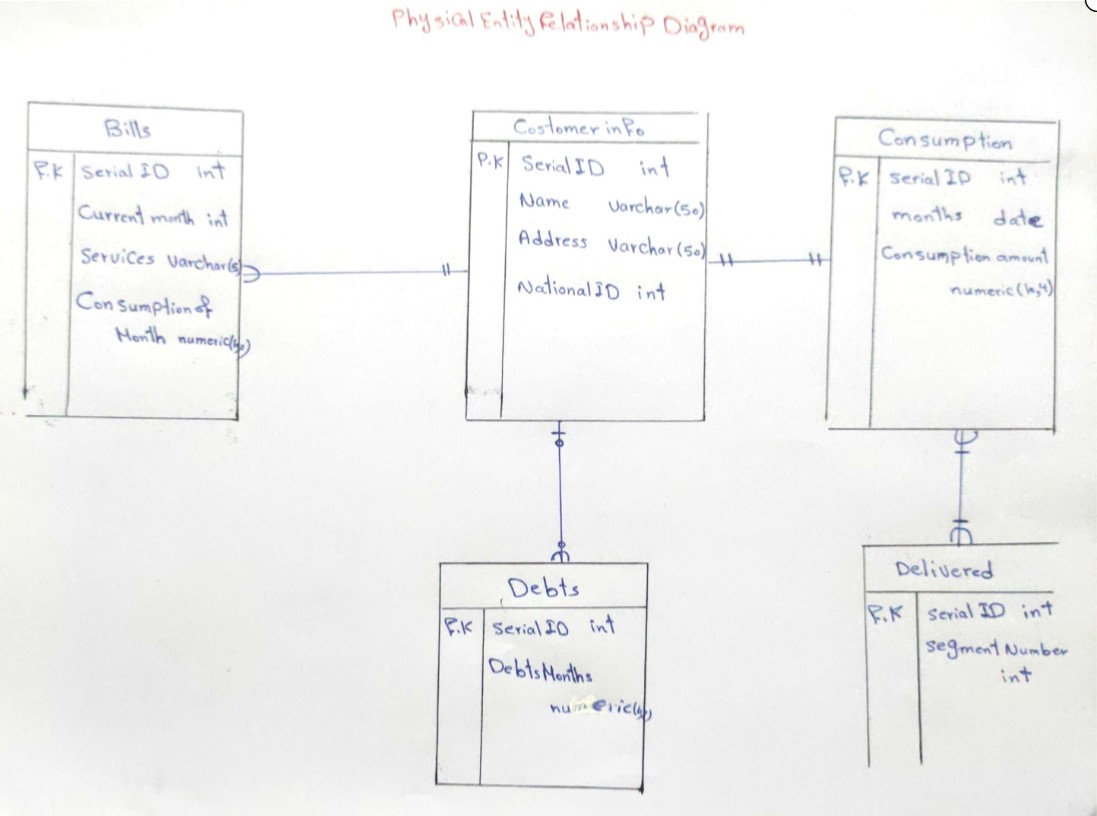 Physical Entity Relationship Diagram
Bills
F.K Serial ID int
Current month int
Services Varchar(5)
Consumption of
Month numeric
Costomer info
P.K Serial ID int
Name Varchar(50)
Address Varchar(50)
National ID int
Consumption
F.K Serial ID int
months date
Consumption amount
numeric
Debts
F.K Serial ID int
Debts Months
numeric
Delivered
F.K Serial ID int
Segment Number
int